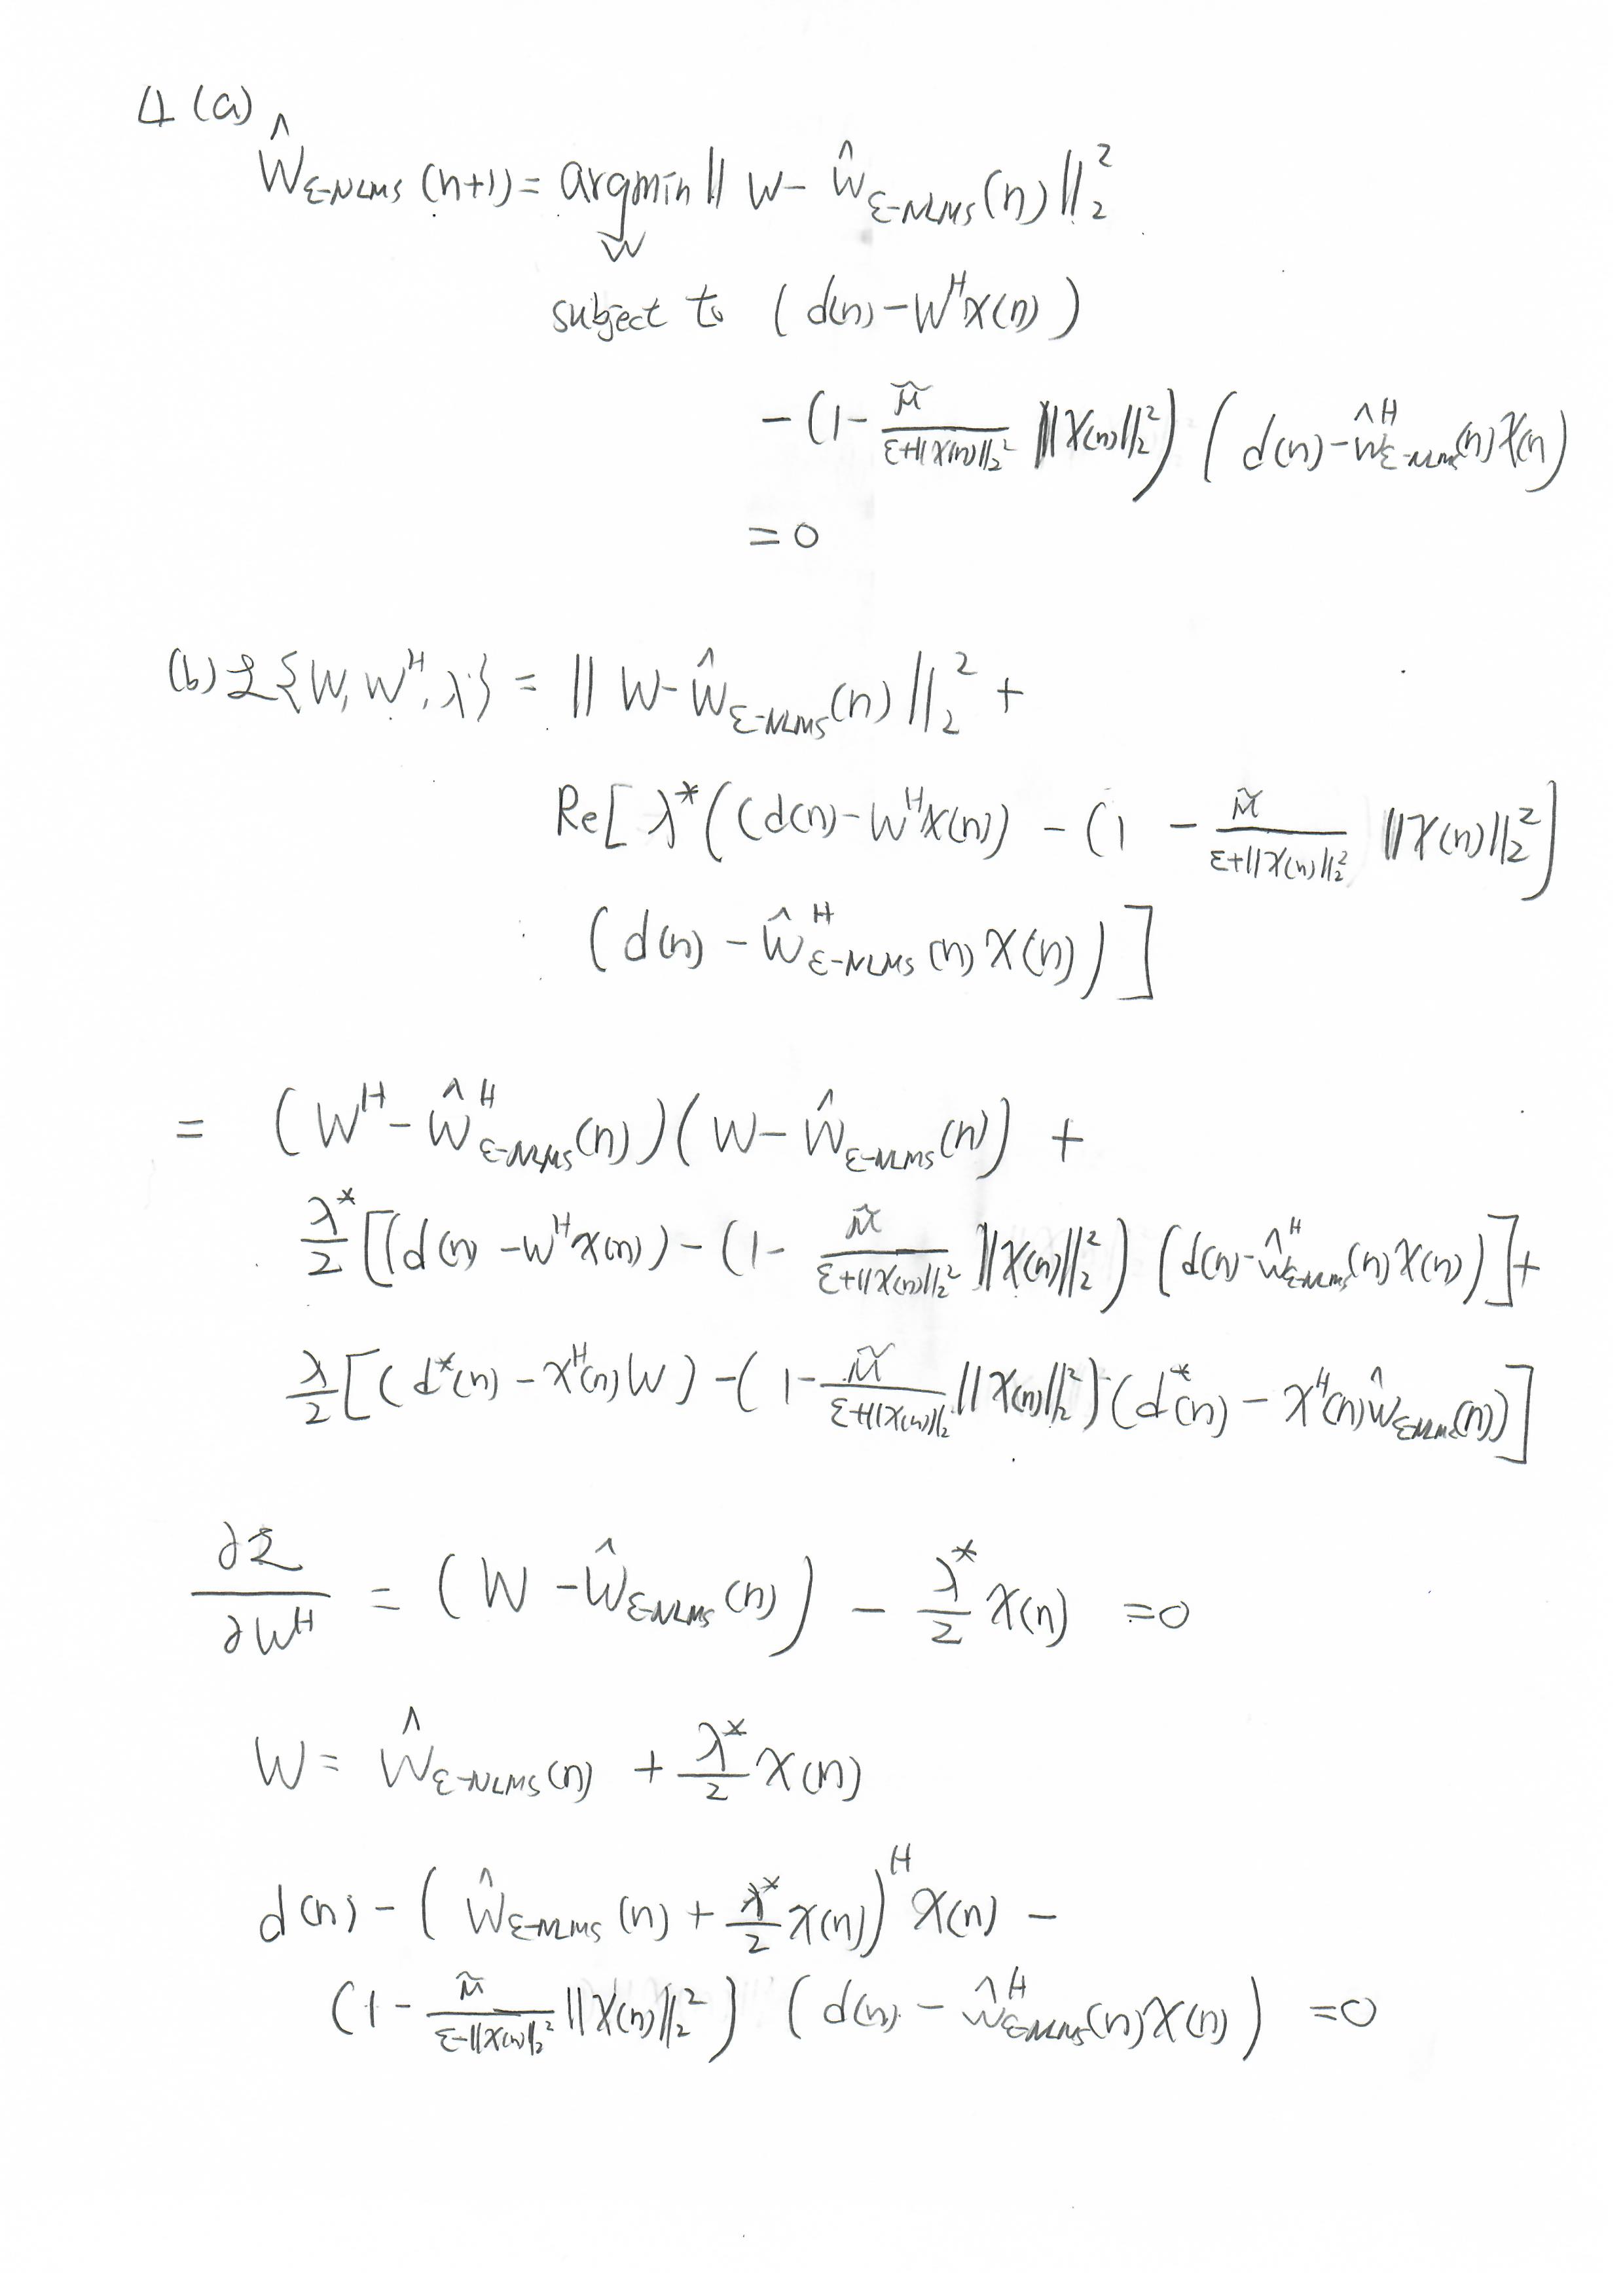 4 (a)
ŵ_{ε-NLMS} (n+1) = argmin_w || w - ŵ_{ε-NLMS}(n) ||_2^2
subject to ( d(n) - w^H x(n) )
- (1 - \frac{μ̃}{ε+||x(n)||_2^2} ||x(n)||_2^2) ( d(n) - ŵ^H_{ε-NLMS}(n) x(n) )
= 0
(b) ℒ{w, w^H, λ} = || w - ŵ_{ε-NLMS}(n) ||_2^2 +
Re[ λ^* ( (d(n) - w^H x(n)) - (1 - \frac{μ̃}{ε+||x(n)||_2^2} ||x(n)||_2^2)
( d(n) - ŵ^H_{ε-NLMS}(n) x(n) ) ]
= (w^H - ŵ^H_{ε-NLMS}(n)) (w - ŵ_{ε-NLMS}(n)) +
\frac{λ^*}{2} [ (d(n) - w^H x(n)) - (1 - \frac{μ̃}{ε+||x(n)||_2^2} ||x(n)||_2^2) (d(n) - ŵ^H_{ε-NLMS}(n) x(n)) ] +
\frac{λ}{2} [ (d^*(n) - x^H(n) w) - (1 - \frac{μ̃}{ε+||x(n)||_2} ||x(n)||_2^2) (d^*(n) - x^H(n) ŵ_{ε-NLMS}(n)) ]
\frac{∂ℒ}{∂w^H} = (w - ŵ_{ε-NLMS}(n)) - \frac{λ^*}{2} x(n) = 0
w = ŵ_{ε-NLMS}(n) + \frac{λ^*}{2} x(n)
d(n) - ( ŵ_{ε-NLMS}(n) + \frac{λ^*}{2} x(n) )^H x(n) -
(1 - \frac{μ̃}{ε-||x(n)||_2^2} ||x(n)||_2^2) ( d(n) - ŵ^H_{ε-NLMS}(n) x(n) ) = 0